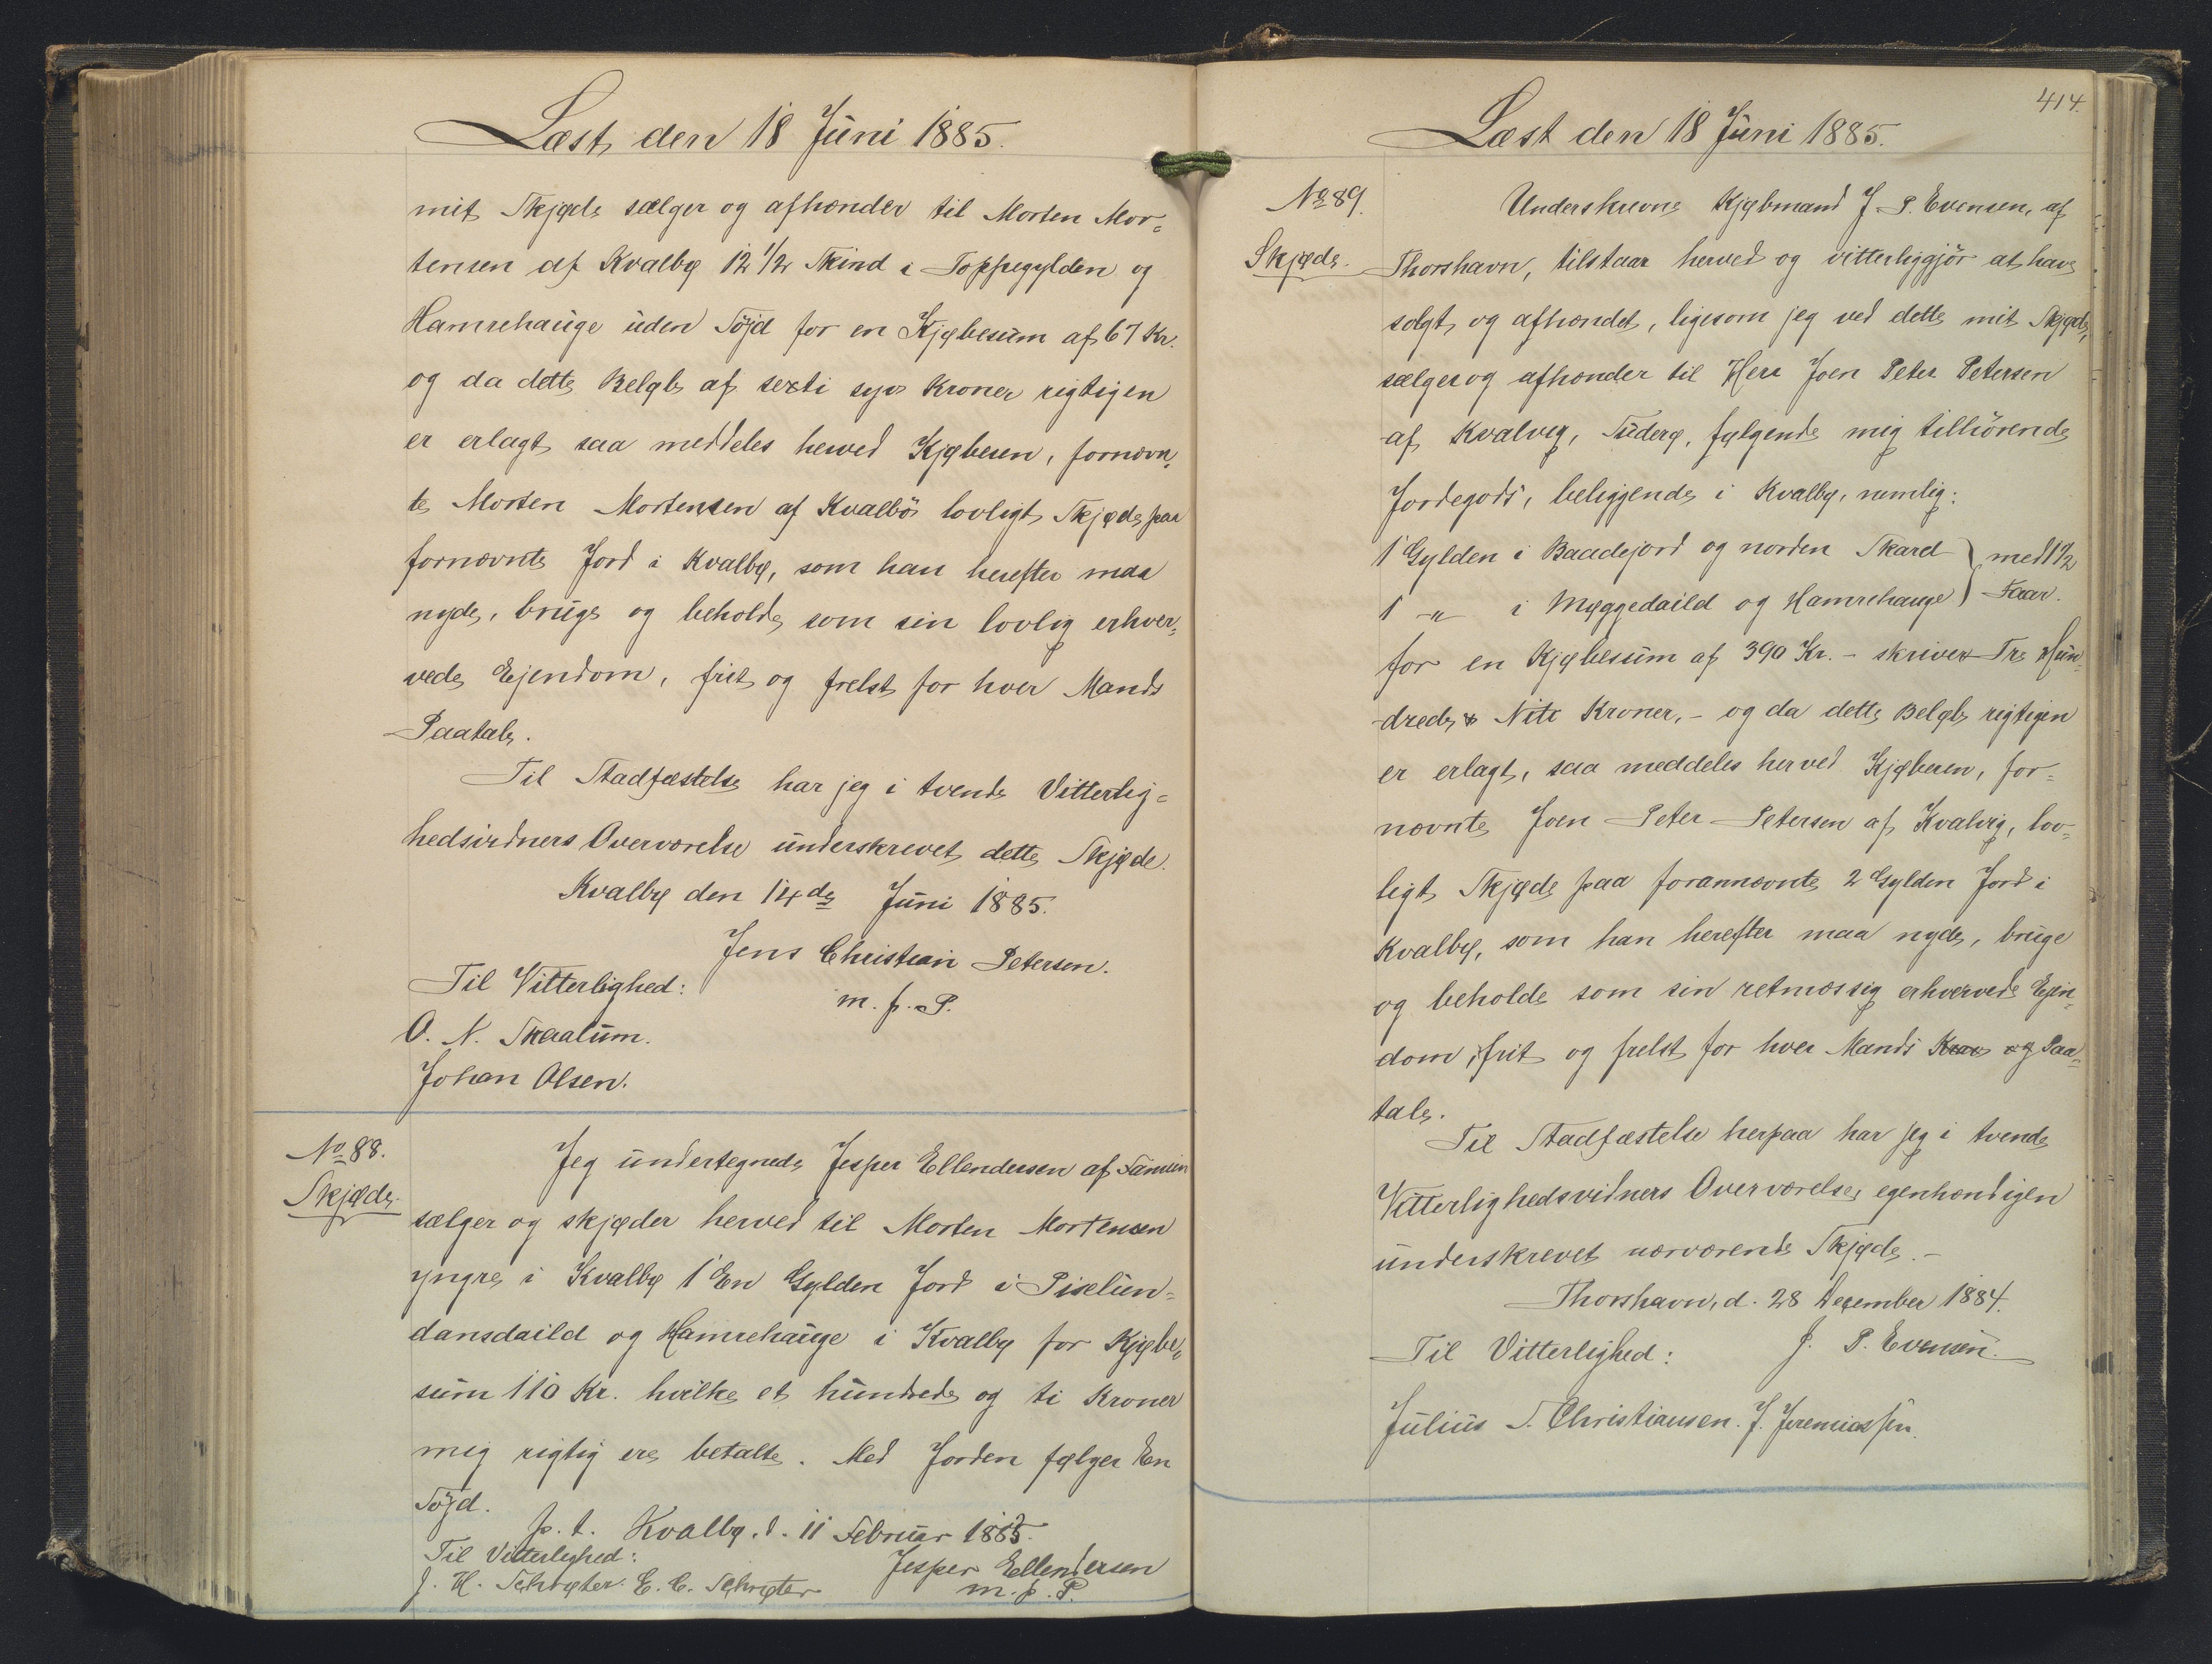 Læst den 18 Juni 1885.
mit Skjøde sælger og afhænder til Morten Mor-
tensen af Kvalbø 12 1/2 Skind i Toppegylden og
Hamrehauge uden Søjd for en Kjøbesum af 67 Kr.
og da dette Beløb af sexti syv Kroner rigtigen
er erlagt saa meddeles herved Kjøberen, fornævn-
te Morten Mortensen af Kvalbö lovligt Skjøde paa
fornævnte Jord i Kvalbø, som han herefter maa
nyde, bruge og beholde som sin lovlig erhver-
vede Ejendom, frit og frelst for hver Mands
Paatale.
Til Stadfæstelse har jeg i tvende Vitterlig-
hedsvidners Overværelse underskrevet dette Skjøde.
Kvalbø den 14de Juni 1885.
Jens Christian Petersen.
Til Vitterlighed:
m. p. P.
O. N. Skaalum.
Johan Olsen.
No 88.
Skjøde.
Jeg undertegnede Jesper Ellendersen af Famien
sælger og skjøder herved til Morten Mortensen
yngre i Kvalbø 1 En Gylden Jord i Piselun-
dansdaild og Hamrehauge i Kvalbø for Kjøbe-
sum 110 Kr. hvilke et hundrede og ti Kroner
mig rigtig ere betalte. Med Jorden følger En
Søjd.
p. t. Kvalbø, d. 11 Februar 1885.
Til Vitterlighed:
Jesper Ellendersen
J. H. Schrøter. E. C. Schrøter
m. p. P.
414.
Læst den 18 Juni 1885.
No 89.
Skjøde.
Underskrevne Kjøbmand J. P. Evensen, af
Thorshavn, tilstaar herved og vitterliggjör at have
solgt og afhændet, ligesom jeg ved dette mit Skjøde,
sælger og afhænder til Herr Joen Peter Petersen
af Kvalvig, Suderø, følgende mig tilhörende
Jordegods, beliggende i Kvalbø, nemlig:
1 Gylden i Baadejord og norden Skard } med 1 1/2
1 -"- i Møggedaild og Hamrehauge } Faar.
for en Kjøbesum af 390 Kr. - skriver Tre Hun-
drede & Niti Kroner, - og da dette Beløb rigtigen
er erlagt, saa meddeles herved Kjøberen, for-
nævnte Joen Peter Petersen af Kvalvig, lov-
ligt Skjøde paa forannævnte 2 Gylden Jord i
Kvalbø, som han herefter maa nyde, bruge
og beholde som sin retmæssig erhvervede Ejen-
dom, frit og frelst for hver Mands Krav og Paa-
tale.
Til Stadfæstelse herpaa har jeg i tvende
Vitterlighedsvidners Overværelse, egenhændigen
underskrevet nærværende Skjøde. -
Thorshavn, d. 28 December 1884.
Til Vitterlighed:
J. P. Evensen.
Julius S. Christiansen. J. Jeremiassen.